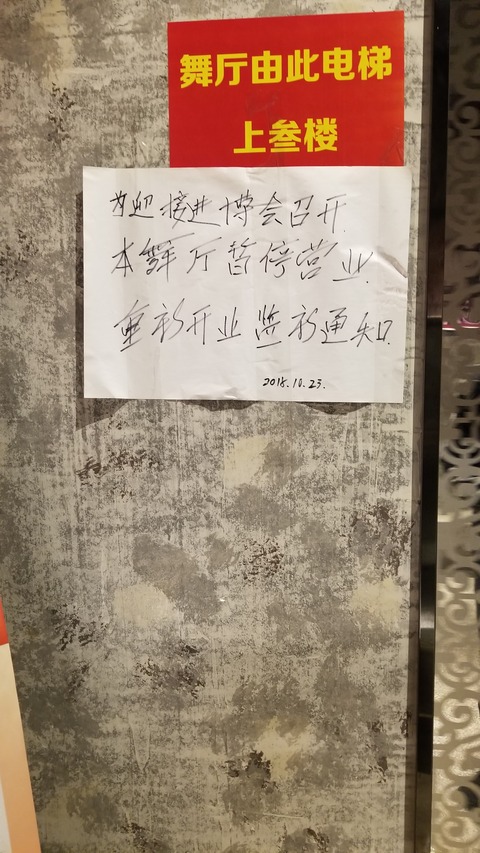 舞厅由此电梯
上叁楼
为迎接进博会召开.
本舞厅暂停营业.
重新开业 等新通知.
2018.10.23.